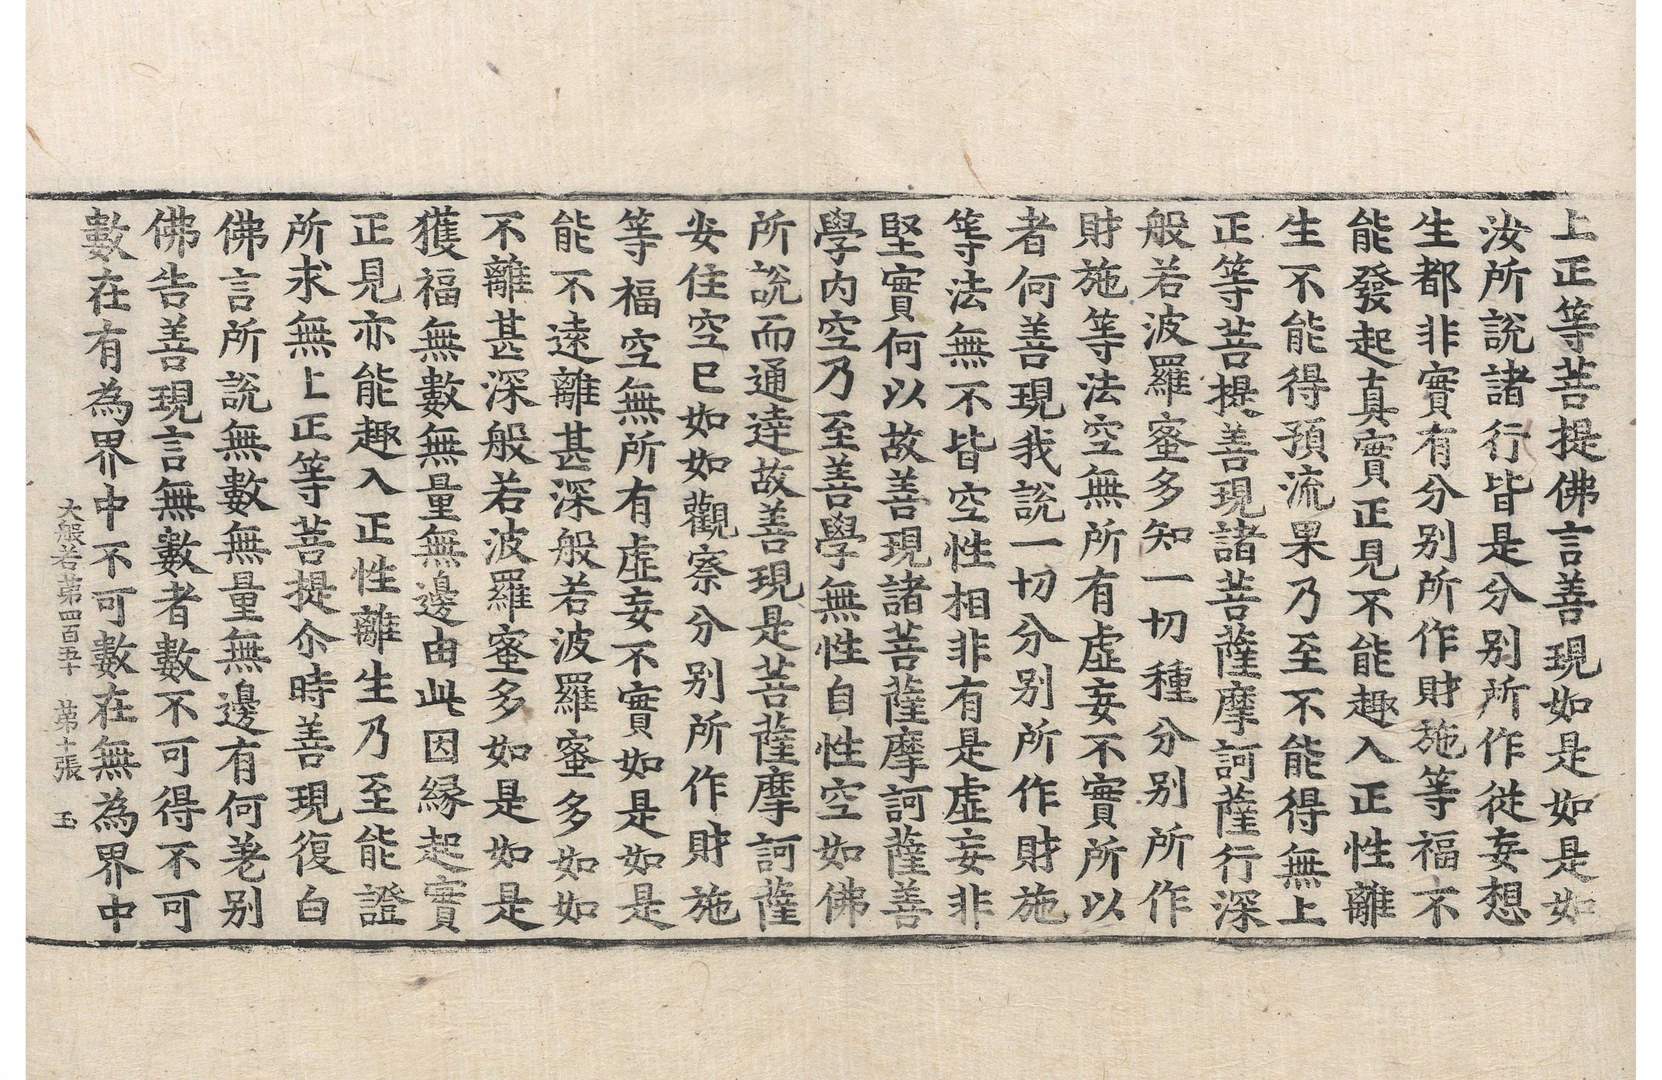 上正等菩提佛言善現如是如是如
汝所說諸行皆是分别所作從妄想
生都非實有分别所作財施等福不
能發起真實正見不能趣入正性離
生不能得預流果乃至不能得無上
正等菩提善現諸菩薩摩訶薩行深
般若波羅蜜多知一切種分别所作
財施等法空無所有虛妄不實所以
者何善現我說一切分别所作財施
等法無不皆空性相非有是虛妄非
堅實何以故善現諸菩薩摩訶薩善
學內空乃至善學無性自性空如佛
所說而通達故善現是菩薩摩訶薩
安住空已如如觀察分别所作財施
等福空無所有虛妄不實如是如是
能不遠離甚深般若波羅蜜多如如
不離甚深般若波羅蜜多如是如是
獲福無數無量無邊由此因緣起實
正見亦能趣入正性離生乃至能證
所求無上正等菩提尒時善現復白
佛言所說無數無量無邊有何差别
佛告善現言無數者數不可得不可
數在有為界中不可數在無為界中
大般若第四百五十 第十張 玉